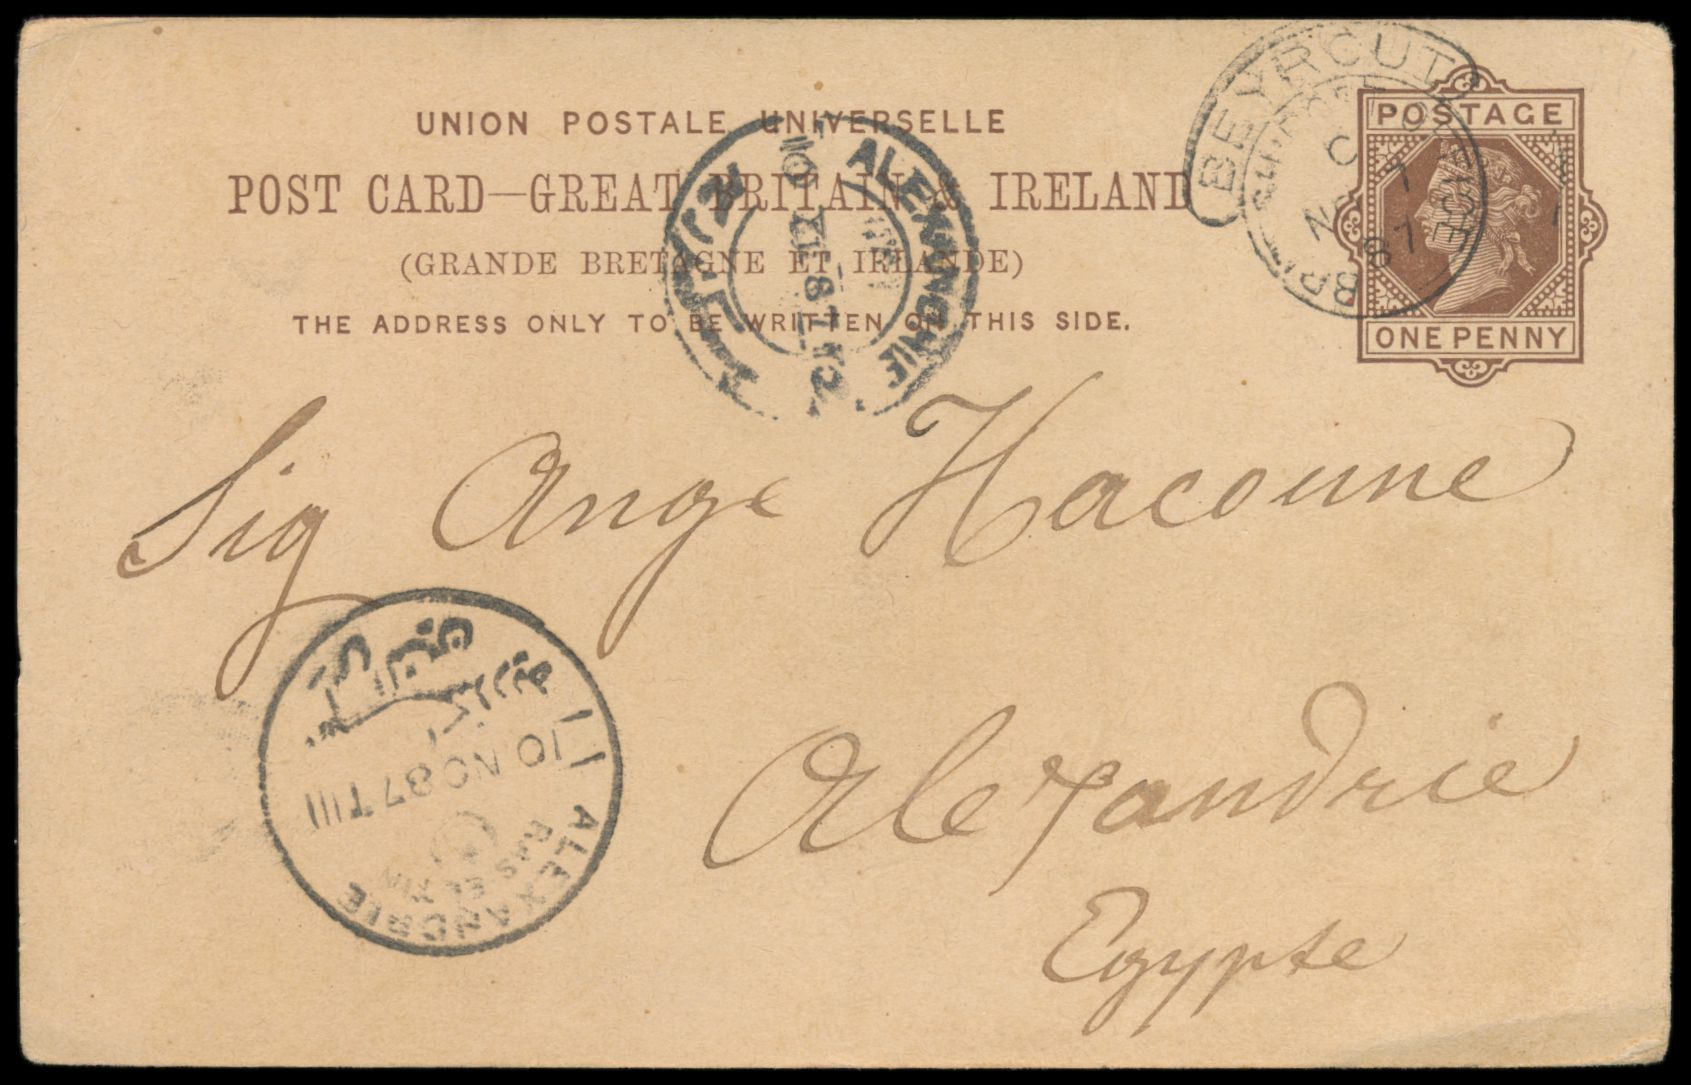 UNION POSTALE UNIVERSELLE
POST CARD—GREAT BRITAIN & IRELAND
(GRANDE BRETAGNE ET IRLANDE)
THE ADDRESS ONLY TO BE WRITTEN ON THIS SIDE.
POSTAGE
ONE PENNY
BEYROUT
C
NO 7
87
ALEXANDRIE
10 XI 87
Sig Ange Hacoune
Alexandrie
Egypte
10 NO 87 T III
ALEXANDRIE